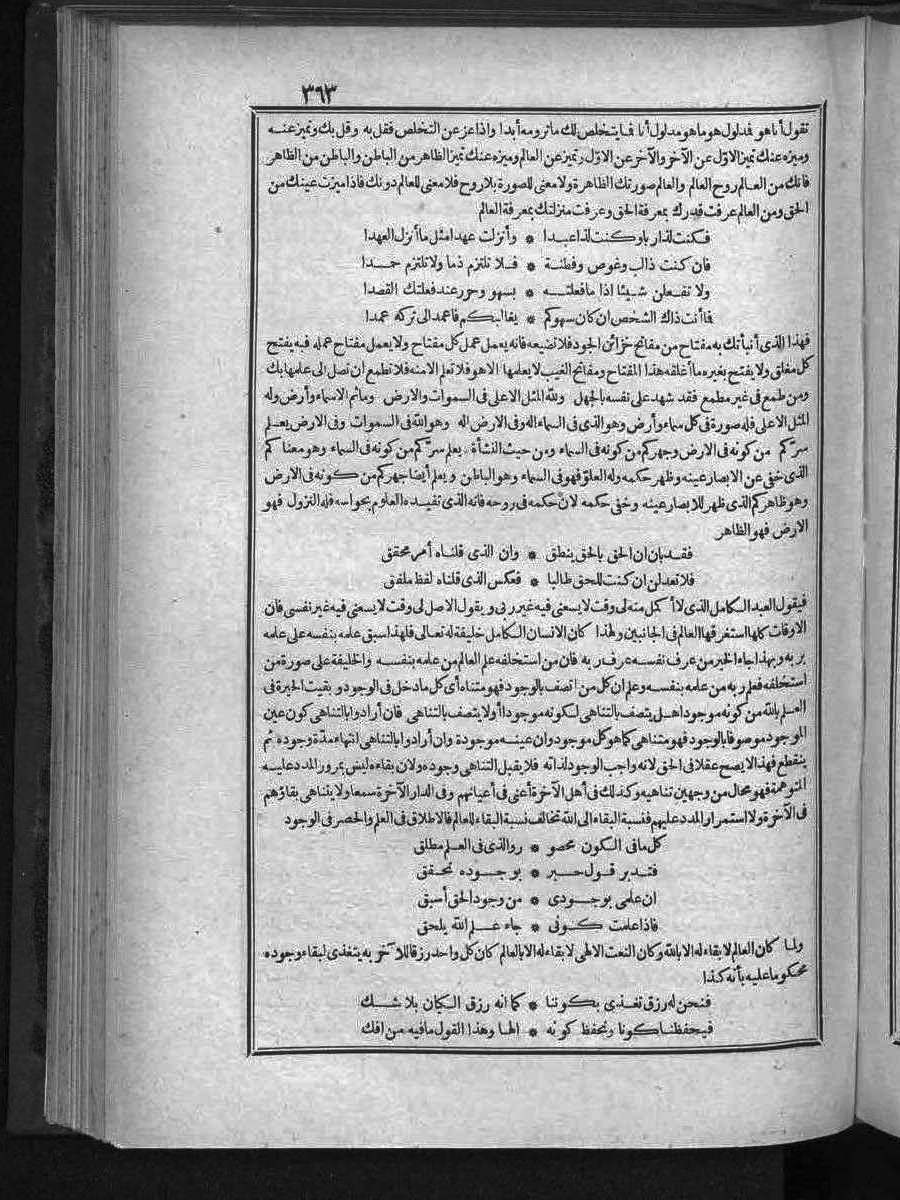 ٣٦٣
تقول أنا هو فمدلول هو ما هو مدلول أنا فما يتخلص لك ما ترومه أبدا واذا عز عن التخلص فقل به وقل بك وتميز عنه
وميزه عنك تميز الاوّل عن الآخر والآخر عن الاوّل وتميز عن العالم وميزه عنك تميز الظاهر من الباطن والباطن من الظاهر
فانك من العالم روح العالم والعالم صورتك الظاهرة ولا معنى للصورة بلا روح فلا معنى للعالم دونك فاذا ميزت عينك من
الحق ومن العالم عرفت قدرك بمعرفة الحق وعرفت منزلتك بمعرفة العالم
فكنت لذا ربا وكنت لذا عبدا * وأنزلت عهدا مثل ما أنزل العهدا
فان كنت ذا لب وغوص وفطنة * فلا تلتزم ذما ولا تلتزم حمدا
ولا تفعلن شيئا اذا ما فعلته * بسهو وحرر عند فعلتك القصدا
فما أنت ذاك الشخص ان كان سهوكم * يغالبكم فاعمد الى تركه عمدا
فهذا الذى أنبأتك به مفتاح من مفاتح خزائن الجود فلا تضيعه فانه يعمل عمل كل مفتاح ولا يعمل مفتاح عمله فبه يفتح
كل مغلق ولا يفتح بغيره ما أغلقه هذا المفتاح ومفاتح الغيب لا يعلمها الا هو فلا تعلم الا منه فلا تطمع ان تصل الى علمها بك
ومن طمع فى غير مطمع فقد شهد على نفسه بالجهل ولله المثل الاعلى فى السموات والارض وما ثم الا سماء وأرض وله
المثل الاعلى فله صورة فى كل سماء وأرض وهو الذى فى السماء اله وفى الارض اله وهو الله فى السموات وفى الارض يعلم
سرّكم من كونه فى الارض وجهركم من كونه فى السماء ومن حيث النشأة يعلم سرّكم من كونه فى السماء وهو معناكم
الذى خفى عن الابصار عينه وظهر حكمه وله العلوّ فهو فى السماء وهو الباطن ويعلم أيضا جهركم من كونه فى الارض
وهو ظاهركم الذى ظهر للابصار عينه وخفى حكمه لانّ حكمه فى روحه فانه الذى تفيده العلوم بحواسه فله النزول فهو
الارض فهو الظاهر
فقد بان ان الحق بالحق ينطق * وان الذى قلناه أمر محقق
فلا تعدلن ان كنت للحق طالبا * فعكس الذى قلناه لفظ ملفق
فيقول العبد الكامل الذى لا أكمل منه لى وقت لا يسعنى فيه غير ربى ويقول الاصل لى وقت لا يسعنى فيه غير نفسى فان
الاوقات كلها استغرقها العالم فى الجانبين ولهذا كان الانسان الكامل خليفة له تعالى فلهذا سبق علمه بنفسه على علمه
بربه وبهذا جاء الخبر من عرف نفسه عرف ربه فان من استخلفه علم العالم من علمه بنفسه والخليفة على صورة من
استخلفه فعلم ربه من علمه بنفسه وعلم ان كل من اتصف بالوجود فهو متناه أى كل ما دخل فى الوجود وبقيت الحيرة فى
العلم بالله من كونه موجودا هل يتصف بالتناهى لكونه موجودا أولا يتصف بالتناهى فان أرادوا بالتناهى كون عين
الموجود موصوفا بالوجود فهو متناهى كما هو كل موجود وان عينه موجودة وان أرادوا بالتناهى انتهاء مدّة وجوده ثم
ينقطع فهذا لا يصح عقلا فى الحق لانه واجب الوجود لذاته فلا يقبل التناهى وجوده ولان بقاءه ليس بمرور المدد عليه
المتوهمة فهو محال من وجهين تناهيه وكذلك فى أهل الآخرة أعنى فى أعيانهم وفى الدار الآخرة سمعا ولا يتناهى بقاؤهم
فى الآخرة ولا استمرار المدد عليهم فنسبة البقاء الى الله تخالف نسبة البقاء للعالم فالاطلاق فى العلم والحصر فى الوجود
كل ما فى الكون محصو * ر والذى فى العلم مطلق
فتدبر قول حبر * بوجوده تحقق
ان علمى بوجودى * من وجود الحق أسبق
فاذا علمت كونى * جاء علم الله يلحق
ولما كان العالم لا بقاء له الا بالله وكان النعت الالهى لا بقاء له الا بالعالم كان كل واحد رزقا للآخر به يتغذى لبقاء وجوده
محكوما عليه بأنه كذا
فنحن له رزق تغذى بكوننا * كما انه رزق الكيان بلا شك
فيحفظنا كونا ونحفظ كونه * الها وهذا القول ما فيه من افك